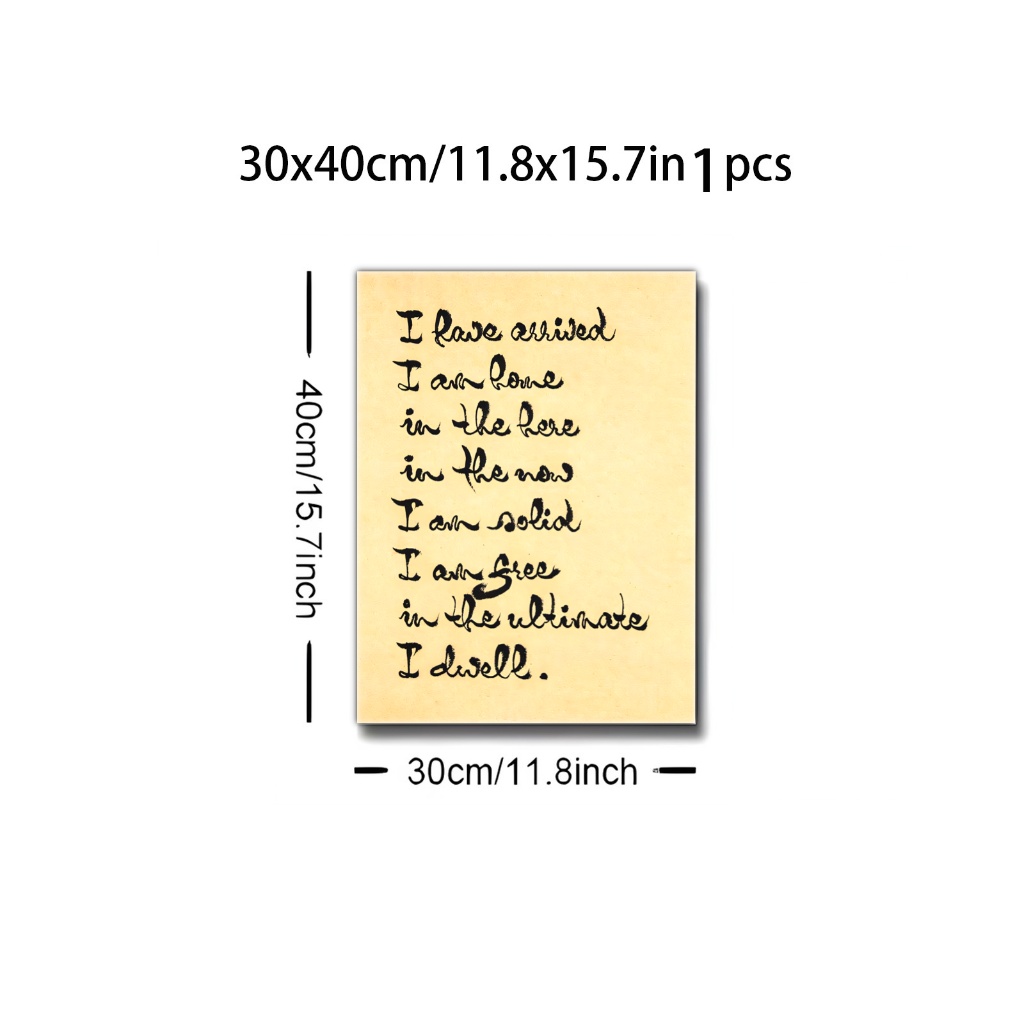 30x40cm/11.8x15.7in 1 pcs
I have arrived
I am home
in the here
in the now
I am solid
I am free
in the ultimate
I dwell.
40cm/15.7inch
30cm/11.8inch